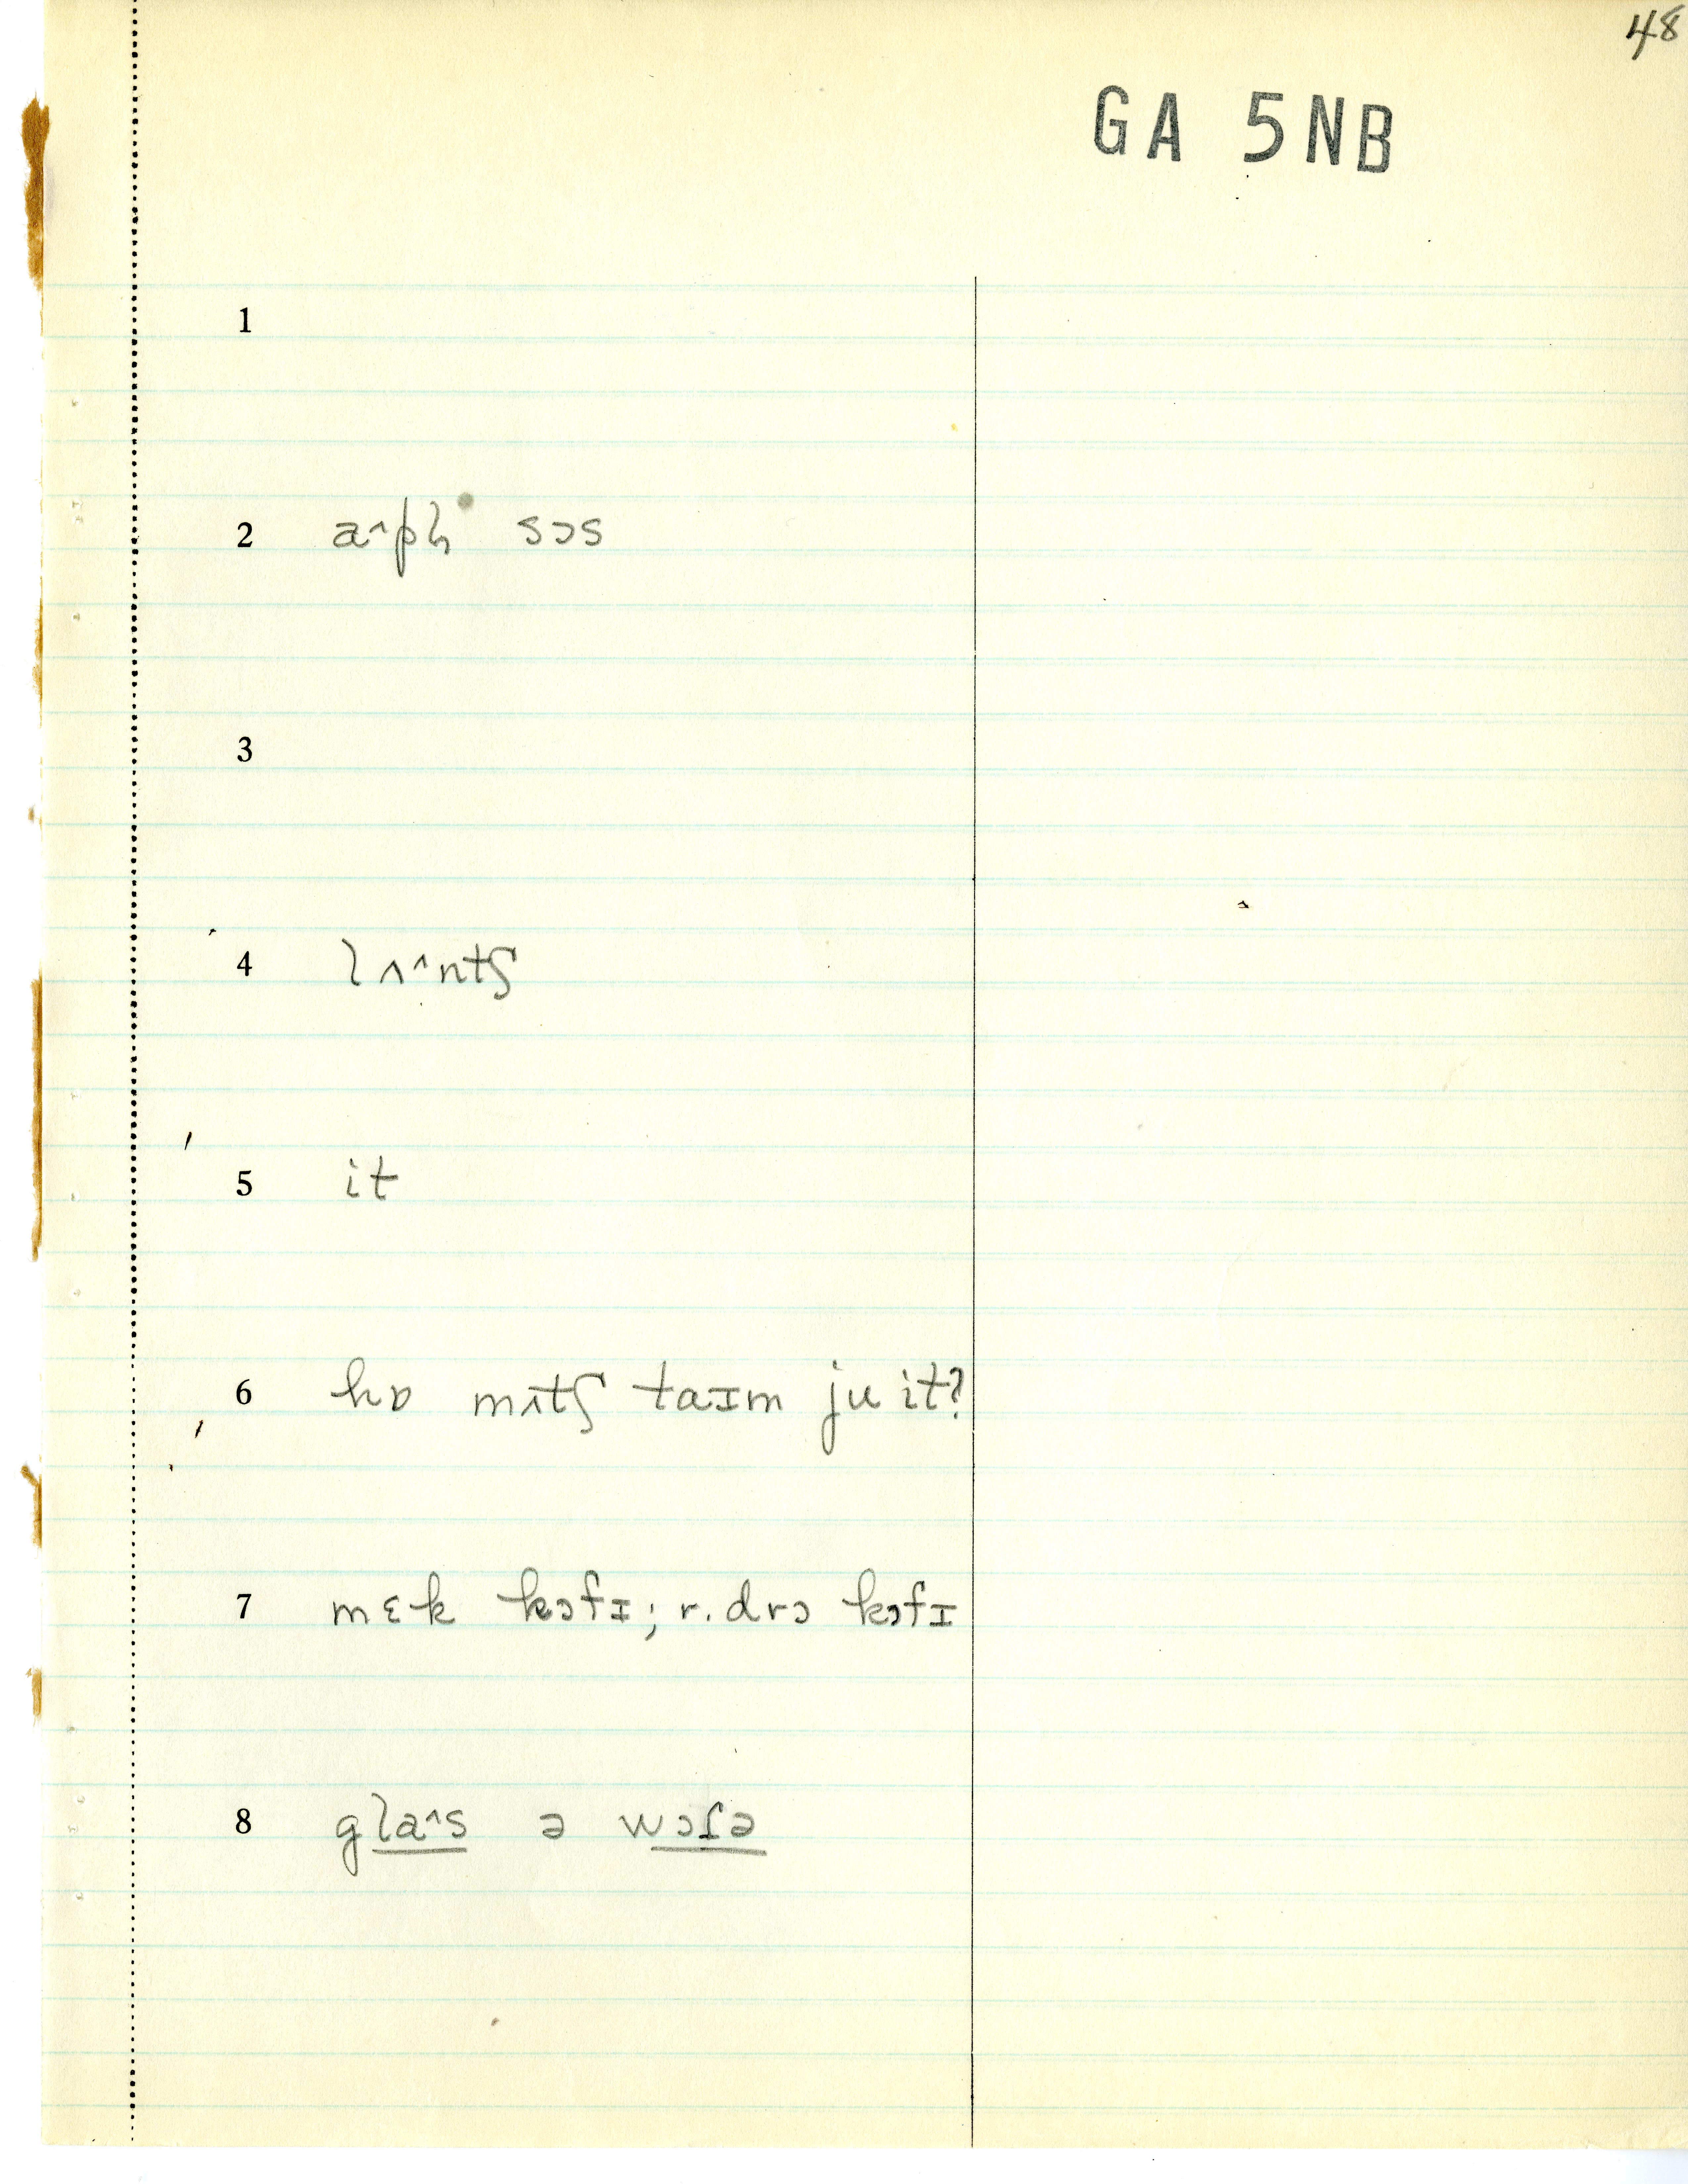 48
GA 5NB
1
2 a˄pl̩ sɔs
3
4 lʌ˄ntʃ
5 it
6 hɒ mʌtʃ taɪm ju it?
7 mɛk kɔfɪ; r. drɔ kɔfɪ
8 gla˄s ə wɔɾə